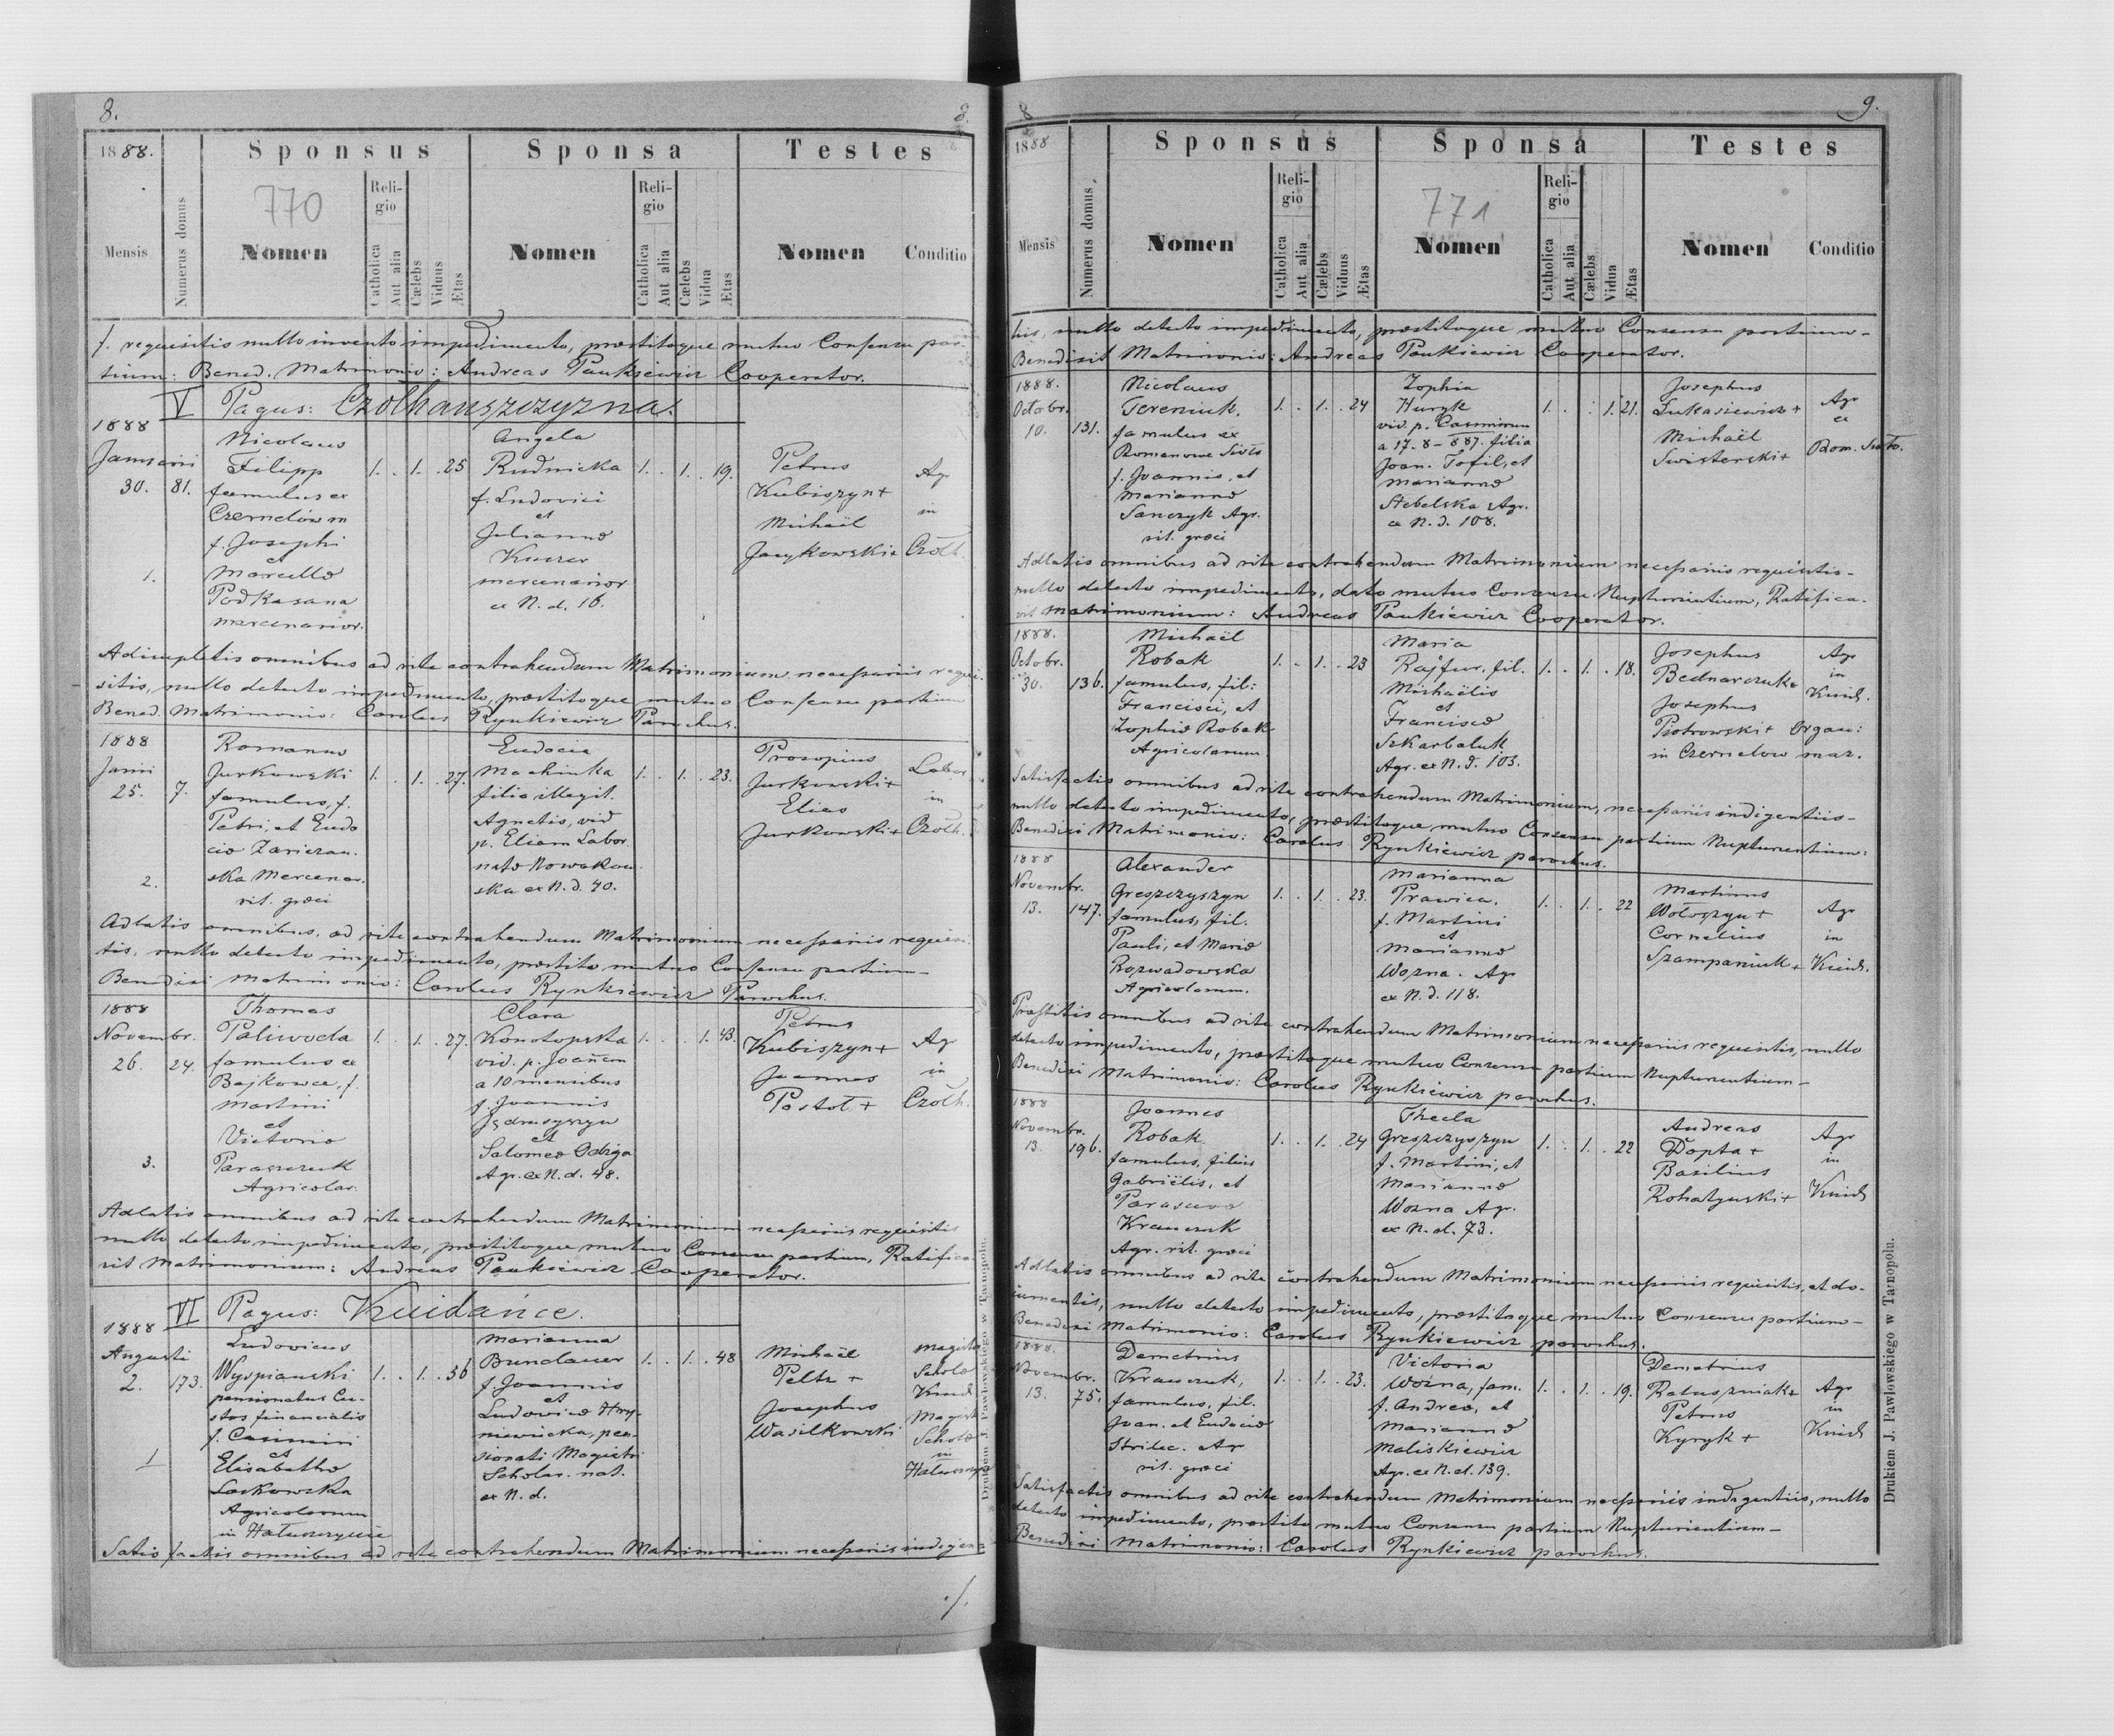 8.
8.
1888.
Sponsus
Sponsa
Testes
770
Mensis
Numerus domus
Nomen
Religio
Catholica
Aut alia
Cælebs
Viduus
Ætas
Nomen
Religio
Catholica
Aut alia
Cælebs
Vidua
Ætas
Nomen
Conditio
/. requisitis nullo invento impedimento, præstitoque mutuo Consensu par-
tium: Bened. Matrimonio: Andreas Paukiewicz Cooperator.
V Pagus: Czołhańszczyzna.
1888
Januarii
30. 81.
1.
Nicolaus
Filipp
famulus ex
Czernelów m
f. Josephi
et
Marcellæ
Podkasana
mercenarior.
1. . 1. . 25
Angela
Rudnicka
f. Ludovici
et
Julianna
Kuczer
mercenarior
ex N. d. 16.
1. . 1. . 19.
Petrus
Kubiszyn +
Michaël
Jacykowski +
Agr
in
Czołh.
Adimpletis omnibus ad rite contrahendum Matrimonium necessariis requi-
sitis, nullo detecto impedimento, præstitoque mutuo Consensu partium
Bened. Matrimonio: Carolus Rynkiewicz Parochus.
1888
Junii
25. 7.
2.
Romanus
Jurkowski
famulus, f.
Petri, et Eudo
ciæ Zariczan.
ska Mercenar.
rit. græci
1. . 1. . 27.
Eudocia
Machinka
filia illegit.
Agnetis, vid
p. Eliam Labor
natæ Nowakow
ska ex N. d. 40.
1. . 1. . 23.
Procopius
Jurkowski +
Elias
Jurkowski +
Labor
in
Czołh.
Adlatis omnibus, ad rite contrahendum Matrimonium necessariis requisi-
tis, nullo detecto impedimento, præstito mutuo Consensu partium-
Benedixi Matrimonio: Carolus Rynkiewicz Parochus.
1888
Novembr.
26. 24.
3.
Thomas
Paliwoda
famulus ex
Bajkowce, f.
Martini
et
Victoriæ
Paraszczuk
Agricolar.
1. . 1. . 27.
Clara
Konotopska
vid. p. Joannem
a 10 mensibus
f. Joannis
Jędruszyszyn
et
Salomeæ Odziga
Agr. ex N. d. 48.
1. . . 1. 43.
Petrus
Kubiszyn +
Joannes
Postoł +
Agr
in
Czołh.
Adlatis omnibus ad rite contrahendum Matrimonium necessariis requisitis
nullo detecto impedimento, præstitoque mutuo Consensu partium, Ratifica-
vit Matrimonium: Andreas Paukiewicz Cooperator.
VI Pagus: Kuidańce.
1888
Augusti
2. 173.
1
Ludovicus
Wyspiański
pensionatus Cu-
stos financialis
f. Casimiri
et
Elisabethæ
Laskowska
Agricolarum
in Hałuszczyńce
1. . 1. . 56
Marianna
Bundauer
f. Joannis
et
Ludovicæ Hry-
niewiecka, pen-
sionati Magistri
Scholar. nat.
ex N. d.
1. . 1. . 48
Michaël
Peltz +
Josephus
Wasilkowski
Magister
Scholæ
Kuid
Magist
Scholæ
in
Hałuszcz
Satisfactis omnibus ad rite contrahendum Matrimonium necessariis indigen-
./.
Drukiem J. Pawłowskiego w Tarnopolu.
8
9.
1888
Sponsus
Sponsa
Testes
771
Mensis
Numerus domus.
Nomen
Religio
Catholica
Aut alia
Cælebs
Viduus
Ætas
Nomen
Religio
Catholica
Aut alia
Cælebs
Vidua
Ætas
Nomen
Conditio
tiis, nullo detecto impedimento, præstitoque mutuo Consensu partium-
Benedixit Matrimonio: Andreas Paukiewicz Cooperator.
1888.
Octobr.
10. 131.
Nicolaus
Tereniuk,
famulus ex
Romanowe Sioło
f. Joannis, et
Mariannæ
Sanczyk Agr.
rit. græci
1. . 1. . 24
Zophia
Huryk
vid. p. Casimirum
a 17. 8 - 887. filia
Joan. Tofil, et
Mariannæ
Stebelska Agr.
ex N. d. 108.
1. . . 1. 21.
Josephus
Łukasiewicz +
Michaël
Swisterski +
Agr
ex
Rom. Sioło.
Adlatis omnibus ad rite contrahendum Matrimonium necessariis requisitis-
nullo detecto impedimento, dato mutuo Consensu Nupturientium, Ratifica-
vit Matrimonium: Andreas Paukiewicz Cooperator.
1888.
Octobr.
30. 136.
Michaël
Robak
famulus, fil:
Francisci, et
Zophiæ Robak
Agricolarum
1. . 1. . 23
Maria
Rajfur, fil.
Michaëlis
et
Franciscæ
Szkarbaluk
Agr. ex N. d. 103.
1. . 1. . 18.
Josephus
Bednarczuk +
Josephus
Piotrowski +
in Czernelow
Agr
in
Kuid.
Organ:
maz.
Satisfactis omnibus ad rite contrahendum Matrimonium, necessariis indigentiis-
nullo detecto impedimento, præstitoque, mutuo Consensu partium Nupturientium:
Benedixi Matrimonio: Carolus Rynkiewicz parochus.
1888
Novembr.
13. 147.
Alexander
Greszczyszyn
famulus, fil.
Pauli, et Mariæ
Rozwadowska
Agricolarum.
1. . 1. . 23.
Marianna
Prawica,
f. Martini
et
Mariannæ
Wozna. Agr
ex N. d. 118.
1. . 1. . 22
Martinus
Wołoszyn +
Cornelius
Szampaniuk +
Agr
in
Kuid.
Præstitis omnibus ad rite contrahendum Matrimonium necessariis requisitis, nullo
detecto impedimento, præstitoque mutuo Consensu partium Nupturientium-
Benedixi Matrimonio: Carolus Rynkiewicz parochus.
1888
Novembr.
13. 196.
Joannes
Robak
famulus, filius
Gabriëlis, et
Parasceva
Krawczuk
Agr. rit. græci
1. . 1. . 24
Thecla
Greszczyszyn
f. Martini, et
Mariannæ
Wozna Agr.
ex N. d. 73.
1. . 1. . 22
Andreas
Dopta +
Basilius
Rohatynski +
Agr
in
Kuid
Adlatis omnibus ad rite contrahendum Matrimonium necessariis requisitis, et do-
cumentis, nullo detecto impedimento, præstitoque mutuo Consensu partium-
Benedixi Matrimonio: Carolus Rynkiewicz parochus.
1888.
Novembr.
13. 75.
Demetrius
Krawczuk,
famulus, fil.
Joan. et Eudociæ
Strilec. Agr
rit. græci
1. . 1. . 23.
Victoria
Wozna, fam.
f. Andreæ, et
Mariannæ
Maliskiewicz
Agr. ex N. d. 139.
1. . 1. . 19.
Demetrius
Ratuszniak +
Petrus
Kyryk +
Agr
in
Kuid
Satisfactis omnibus ad rite contrahendum Matrimonium necessariis indigentiis, nullo
detecto impedimento, præstito mutuo Consensu partium Nupturientium-
Benedixi Matrimonio: Carolus Rynkiewicz parochus.
Drukiem J. Pawłowskiego w Tarnopolu.